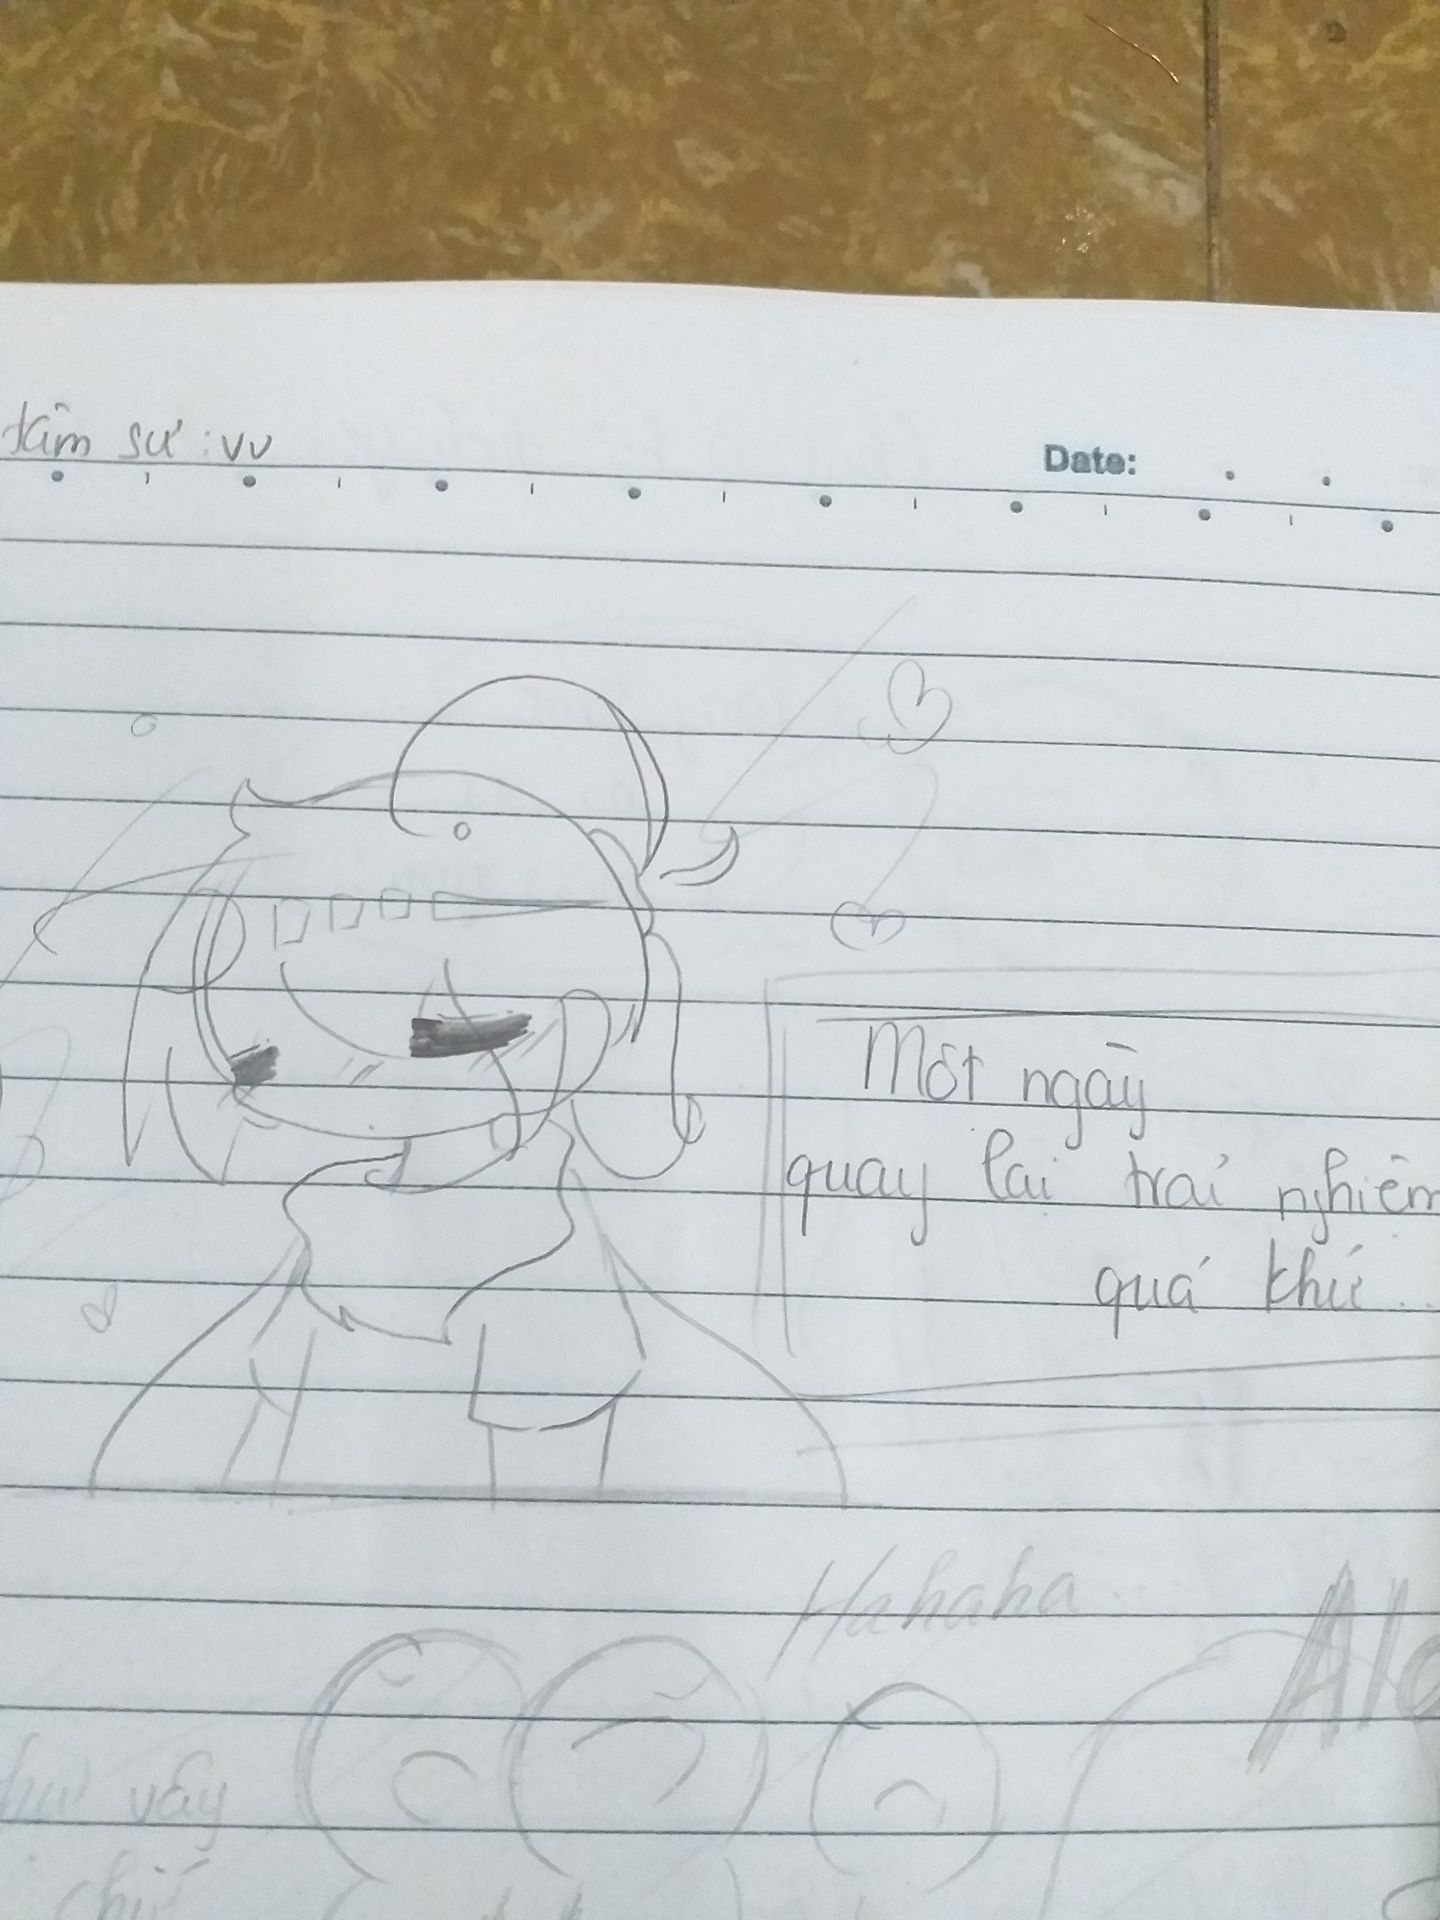 tâm sự :vv
Date:
Một ngày
quay lại trải nghiệm
quá khứ...
Hahaha...
Alo
như vậy
chứ